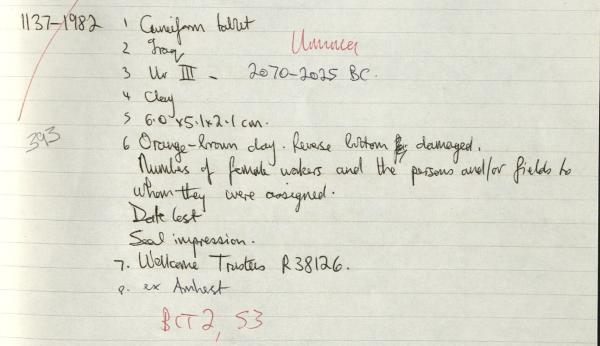 1137-1982 1 Cuneiform tablet
2 Iraq Umma
3 Ur III - 2070-2025 BC.
4 Clay
5 6.0 x 5.1 x 2.1 cm.
393
6 Orange-brown clay. Reverse bottom damaged.
Numbers of female workers and the persons and/or fields to
whom they were assigned.
Date lost
Seal impression.
7. Wellcome Trustees R38126.
8. ex Amherst
BCT2, 53